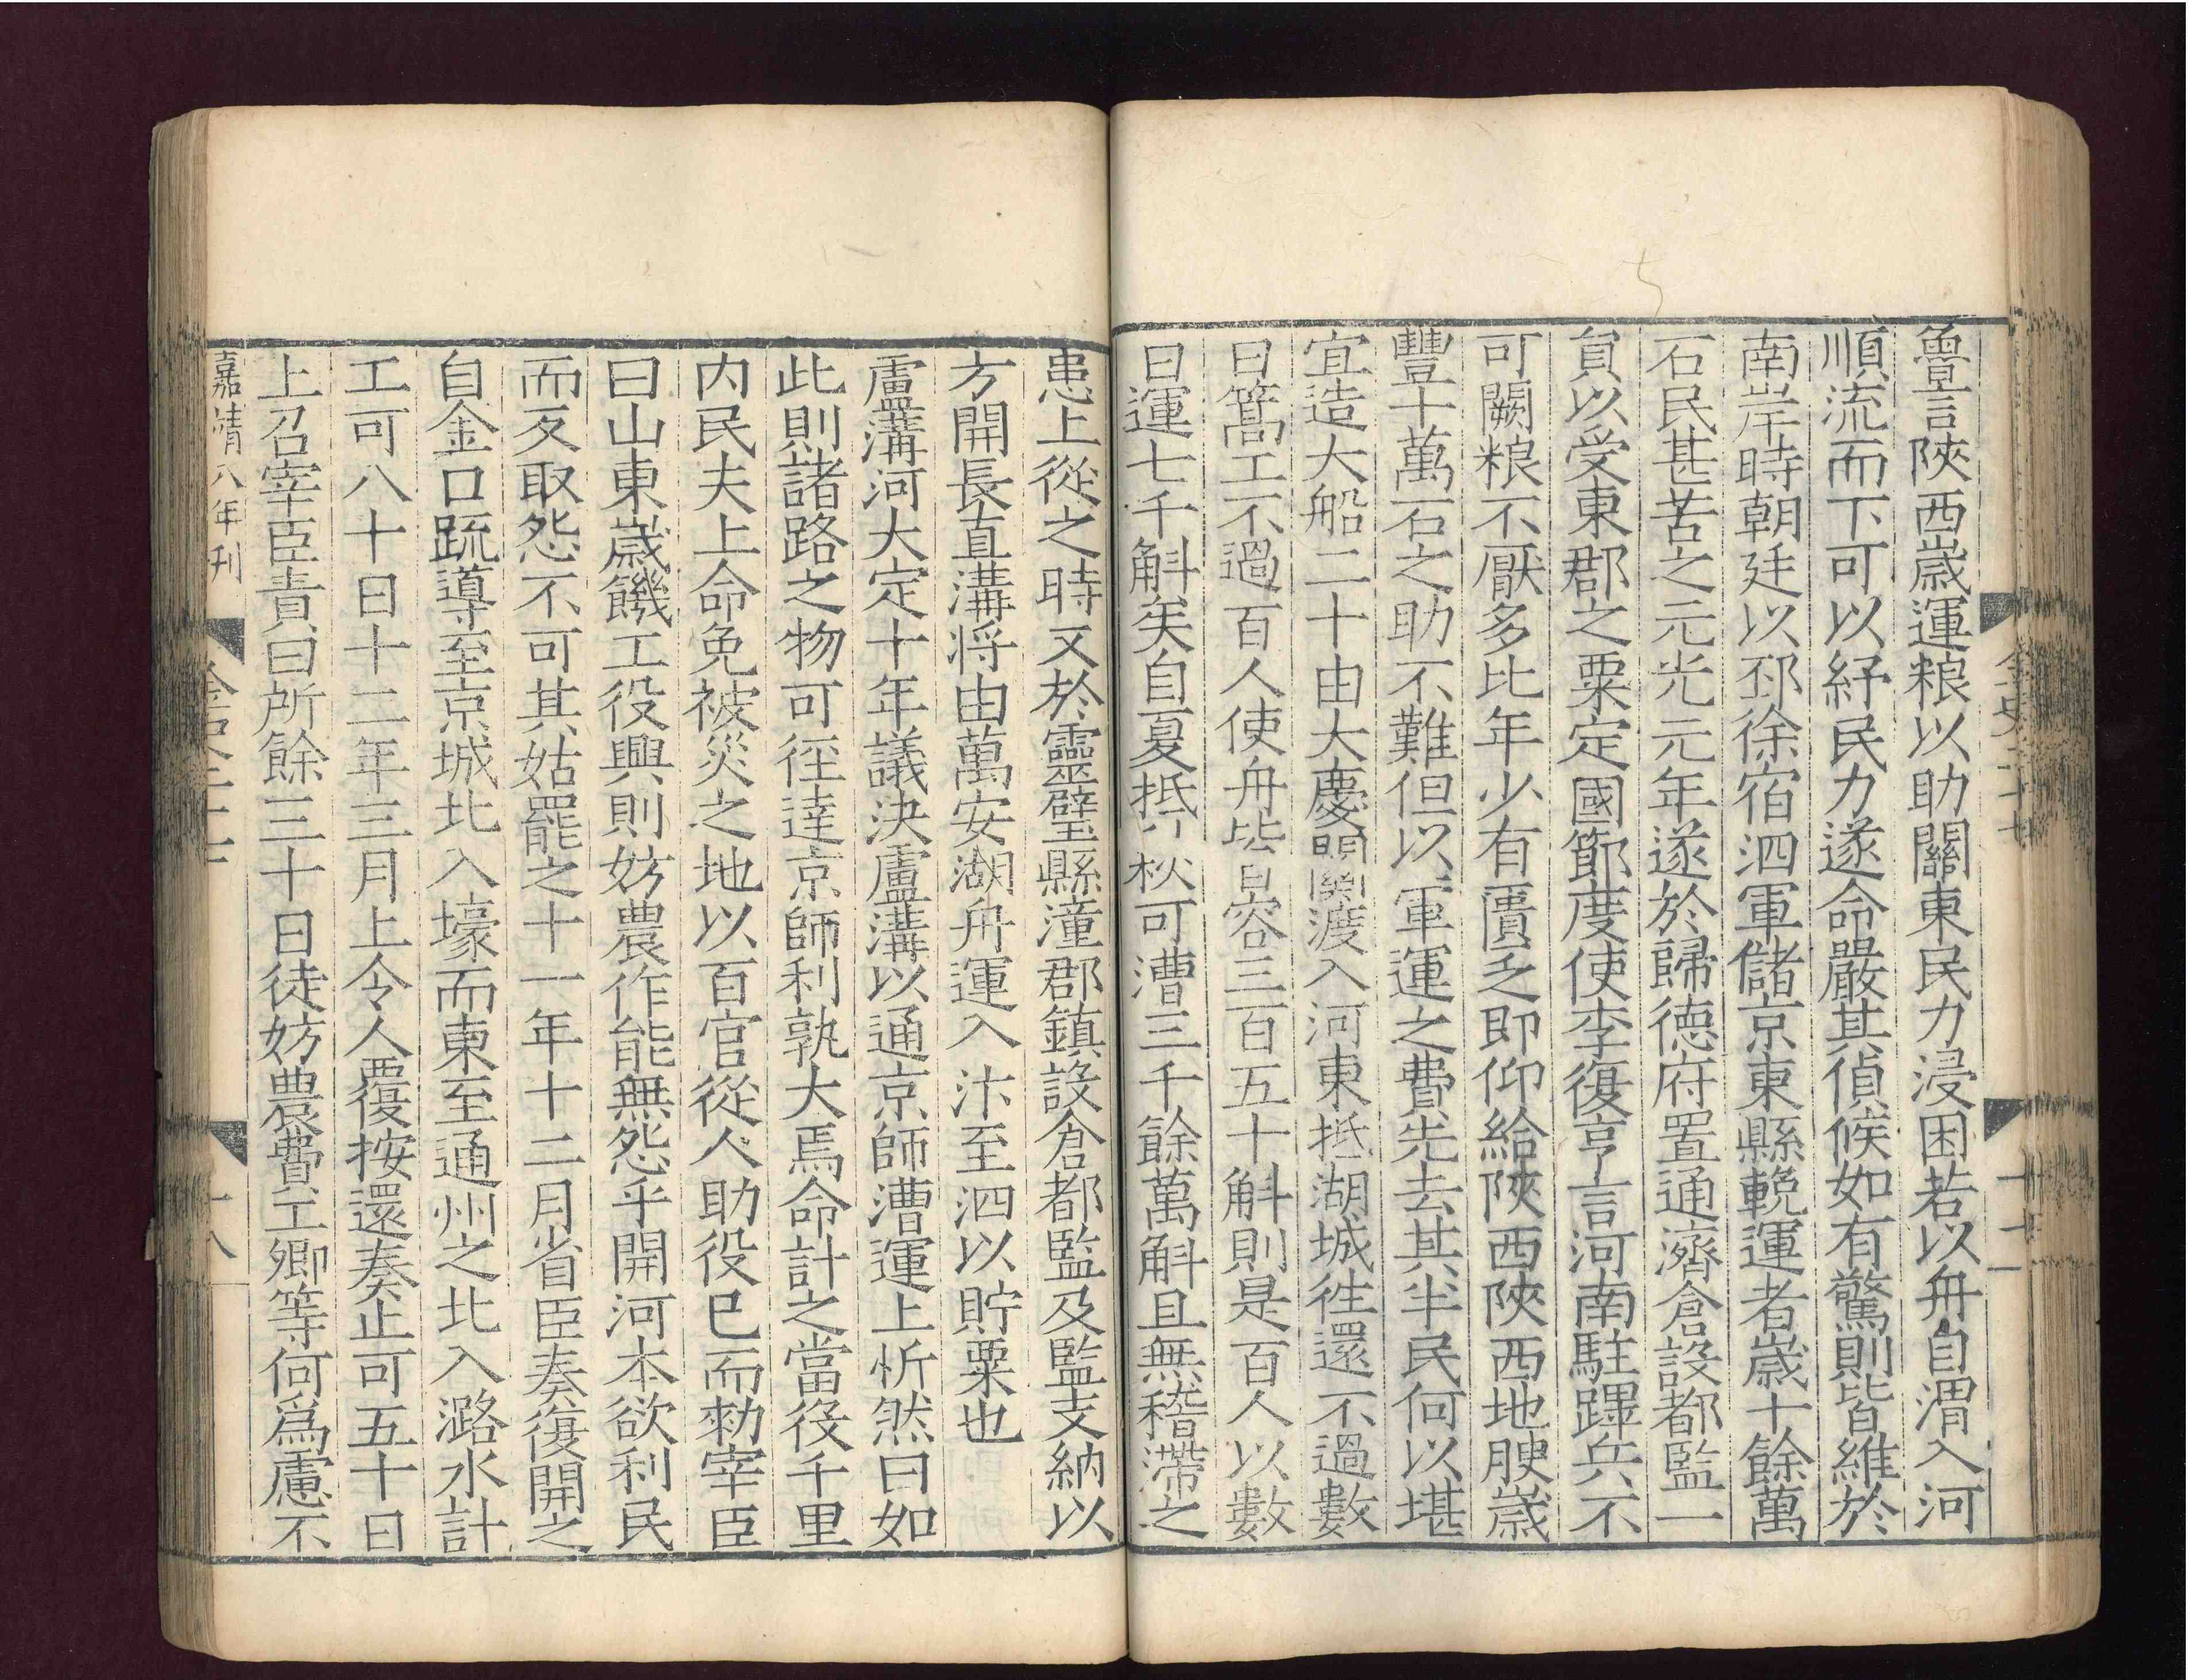 魯言陝西歳運粮以助關東民力浸困若以舟自渭入河
順流而下可以紓民力遂命嚴其偵候如有驚則皆維於
南岸時朝廷以邳徐宿泗軍儲京東縣輓運者歳十餘萬
石民甚苦之元光元年遂於歸德府置通濟倉設都監一
貟以受東郡之粟定國節度使李復亨言河南駐蹕兵不
可闕粮不厭多比年少有匱乏即仰給陝西陝西地腴歳
豐十萬石之助不難但以軍運之費先去其半民何以堪
宜造大船二十由大慶關渡入河東抵湖城徃還不過數
日篙工不過百人使舟皆容三百五十斛則是百人以數
日運七千斛矣自夏抵秋可漕三千餘萬斛且無稽滯之
患上從之時又於靈璧縣潼郡鎮設倉都監及監支納以
方開長直溝将由萬安湖舟運入汴至泗以貯粟也
盧溝河大定十年議決盧溝以通京師漕運上忻然曰如
此則諸路之物可徑達京師利孰大焉命計之當役千里
内民夫上命免被災之地以百官從人助役已而勑宰臣
曰山東歳饑工役興則妨農作能無怨乎開河本欲利民
而反取怨不可其姑罷之十一年十二月省臣奏復開之
自金口疏導至京城北入壕而東至通州之北入潞水計
工可八十日十二年三月上令人覆按還奏止可五十日
上召宰臣責曰所餘三十日徒妨農費工卿等何爲慮不
嘉靖八年刊